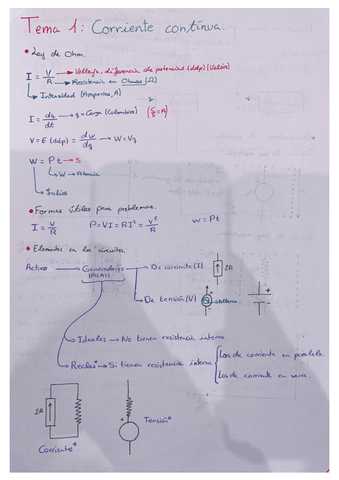 Tema 1: Corriente contínua.
• Ley de Ohm.
I = V/R → Voltaje, diferencia de potencial (ddp) (Voltios)
→ Resistencia en Ohmios (Ω)
↳ Intensidad (Amperios, A)
I = dq/dt → q = Carga (Culombios) (C/s = A)
V = E (ddp) = dW/dq → W = Vq
W = P t → s
↳ W → Potencia
↳ Julios
• Formas útiles para problemas.
I = V/R P = VI = RI² = V²/R W = Pt
• Elementos en los circuitos.
Activo → Generadores → De corriente (I) 2A
(Pilas)
→ De tensión (V) + - + -
→ Ideales → No tienen resistencia interna
→ Reales* → Si tienen resistencia interna { Los de corriente en paralelo.
Los de corriente en serie.
2A + -
Tensión*
Corriente*